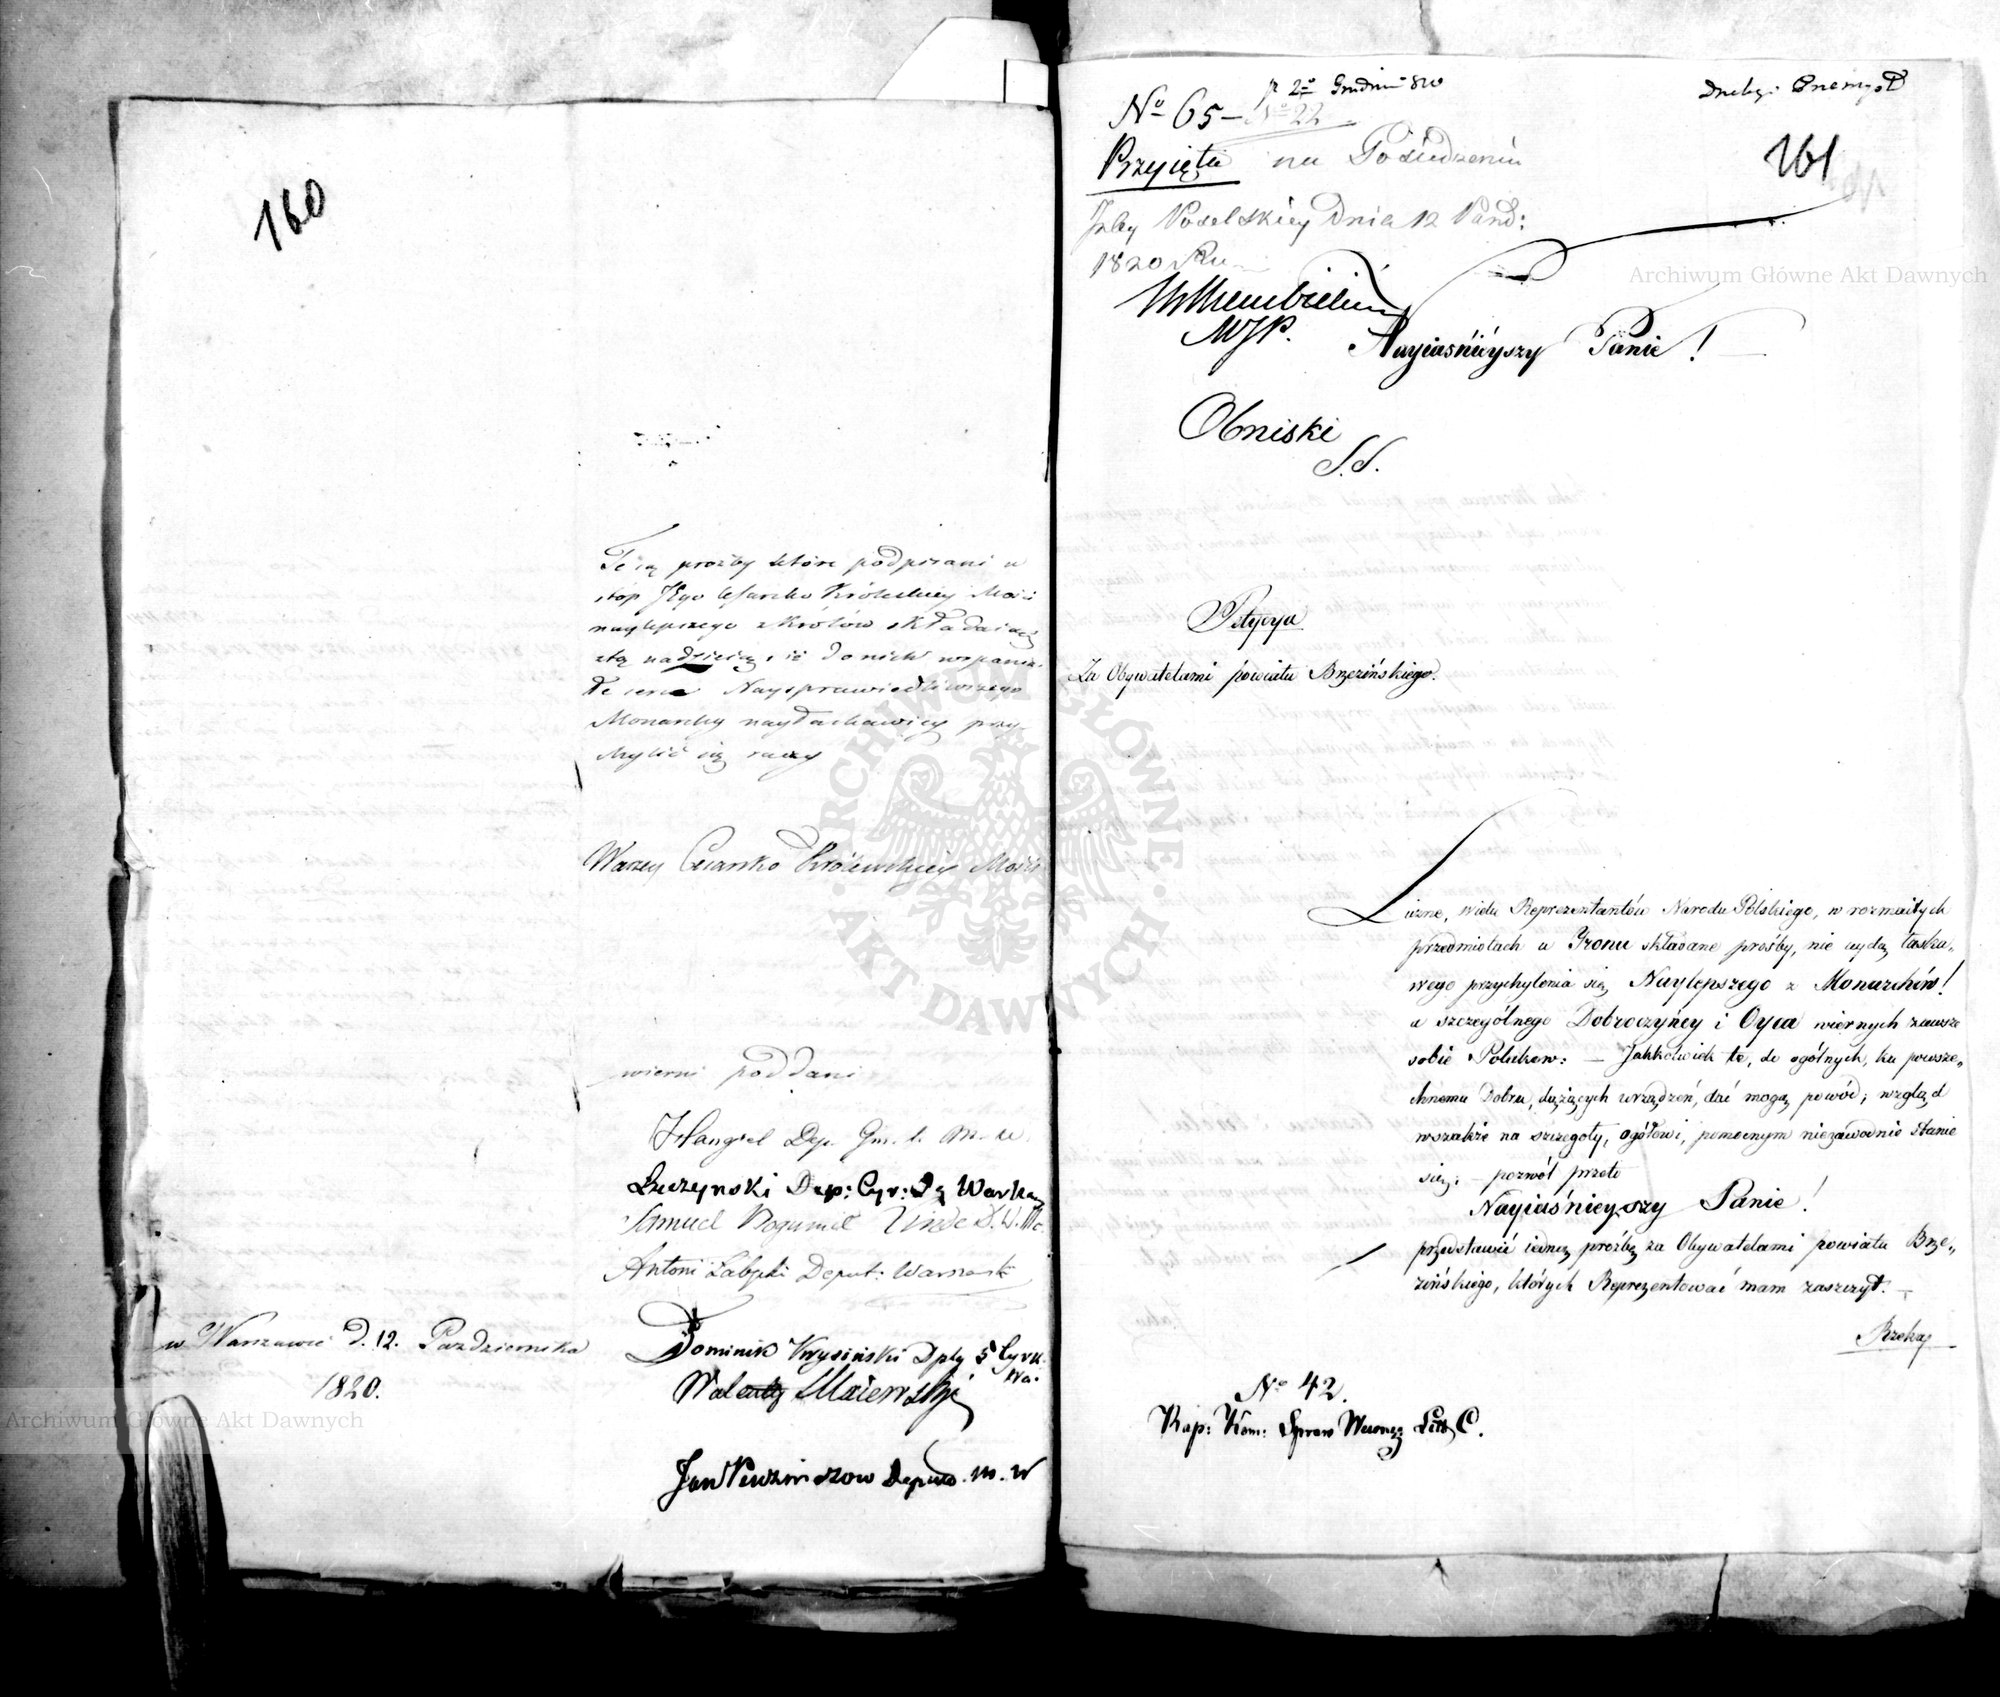 160
Te są prozby które podpisani u
stóp JEgo Cesarsko Królewskiey Mości
naylepszego z Królów składaiąc
stą nadzieią, iż do nich wspania-
łe serce Naysprawiedliwszego
Monarchy nayłaskawiey przy-
chylić się raczy
Waszey Cesarsko Królewskiey Mości
wierni poddani
Dep. Gm. 1. M. W.
Łuczynski Dep: Cyr:
Samuel Bogumił Linde D. W.
Antoni Deput: Warszawsk
Dominik Krysiński Dpty 5 Cyrk.
Wa.
Walenty Maiewski
w Warszawie d. 12. Pazdziernika
1820.
Jan Deput. M. W
Archiwum Główne Akt Dawnych
2go Grudnia 820
No 65 – No 22
161
Przyięta na Posiedzeniu
Izby Poselskiey Dnia 12 Pazd:
1820 Ru
MJP.
Archiwum Główne Akt Dawnych
Nayiaśnieyszy Panie!
Obniski
S.S.
Petycya
Za Obywatelami powiatu Brzezińskiego.
ARCHIWUM GŁÓWNE
AKT DAWNYCH
Liczne, wielu Reprezentantów Narodu Polskiego, w rozmaitych
przedmiotach u Tronu składane prośby, nie uydą łaska„
wego przychylenia się Naylepszego z Monarchów!
a szczególnego Dobroczyńcy i Oyca wiernych zawsze
sobie Polaków: – Jakkolwiek te, do ogólnych, ku powsze„
chnemu Dobru, dążących urządzeń, dać mogą powód; wzgląd
wszakże na szczegóły, ogółowi, pomocnym niezawodnie stanie
się; – pozwól przeto
Nayiaśnieyszy Panie!
przedstawić iedną prożbę za Obywatelami powiatu Brze„
zińskiego, których Reprezentować mam zaszczyt. –
No 42.
Rap: Kom: Spraw Wewnę: Litt. C.